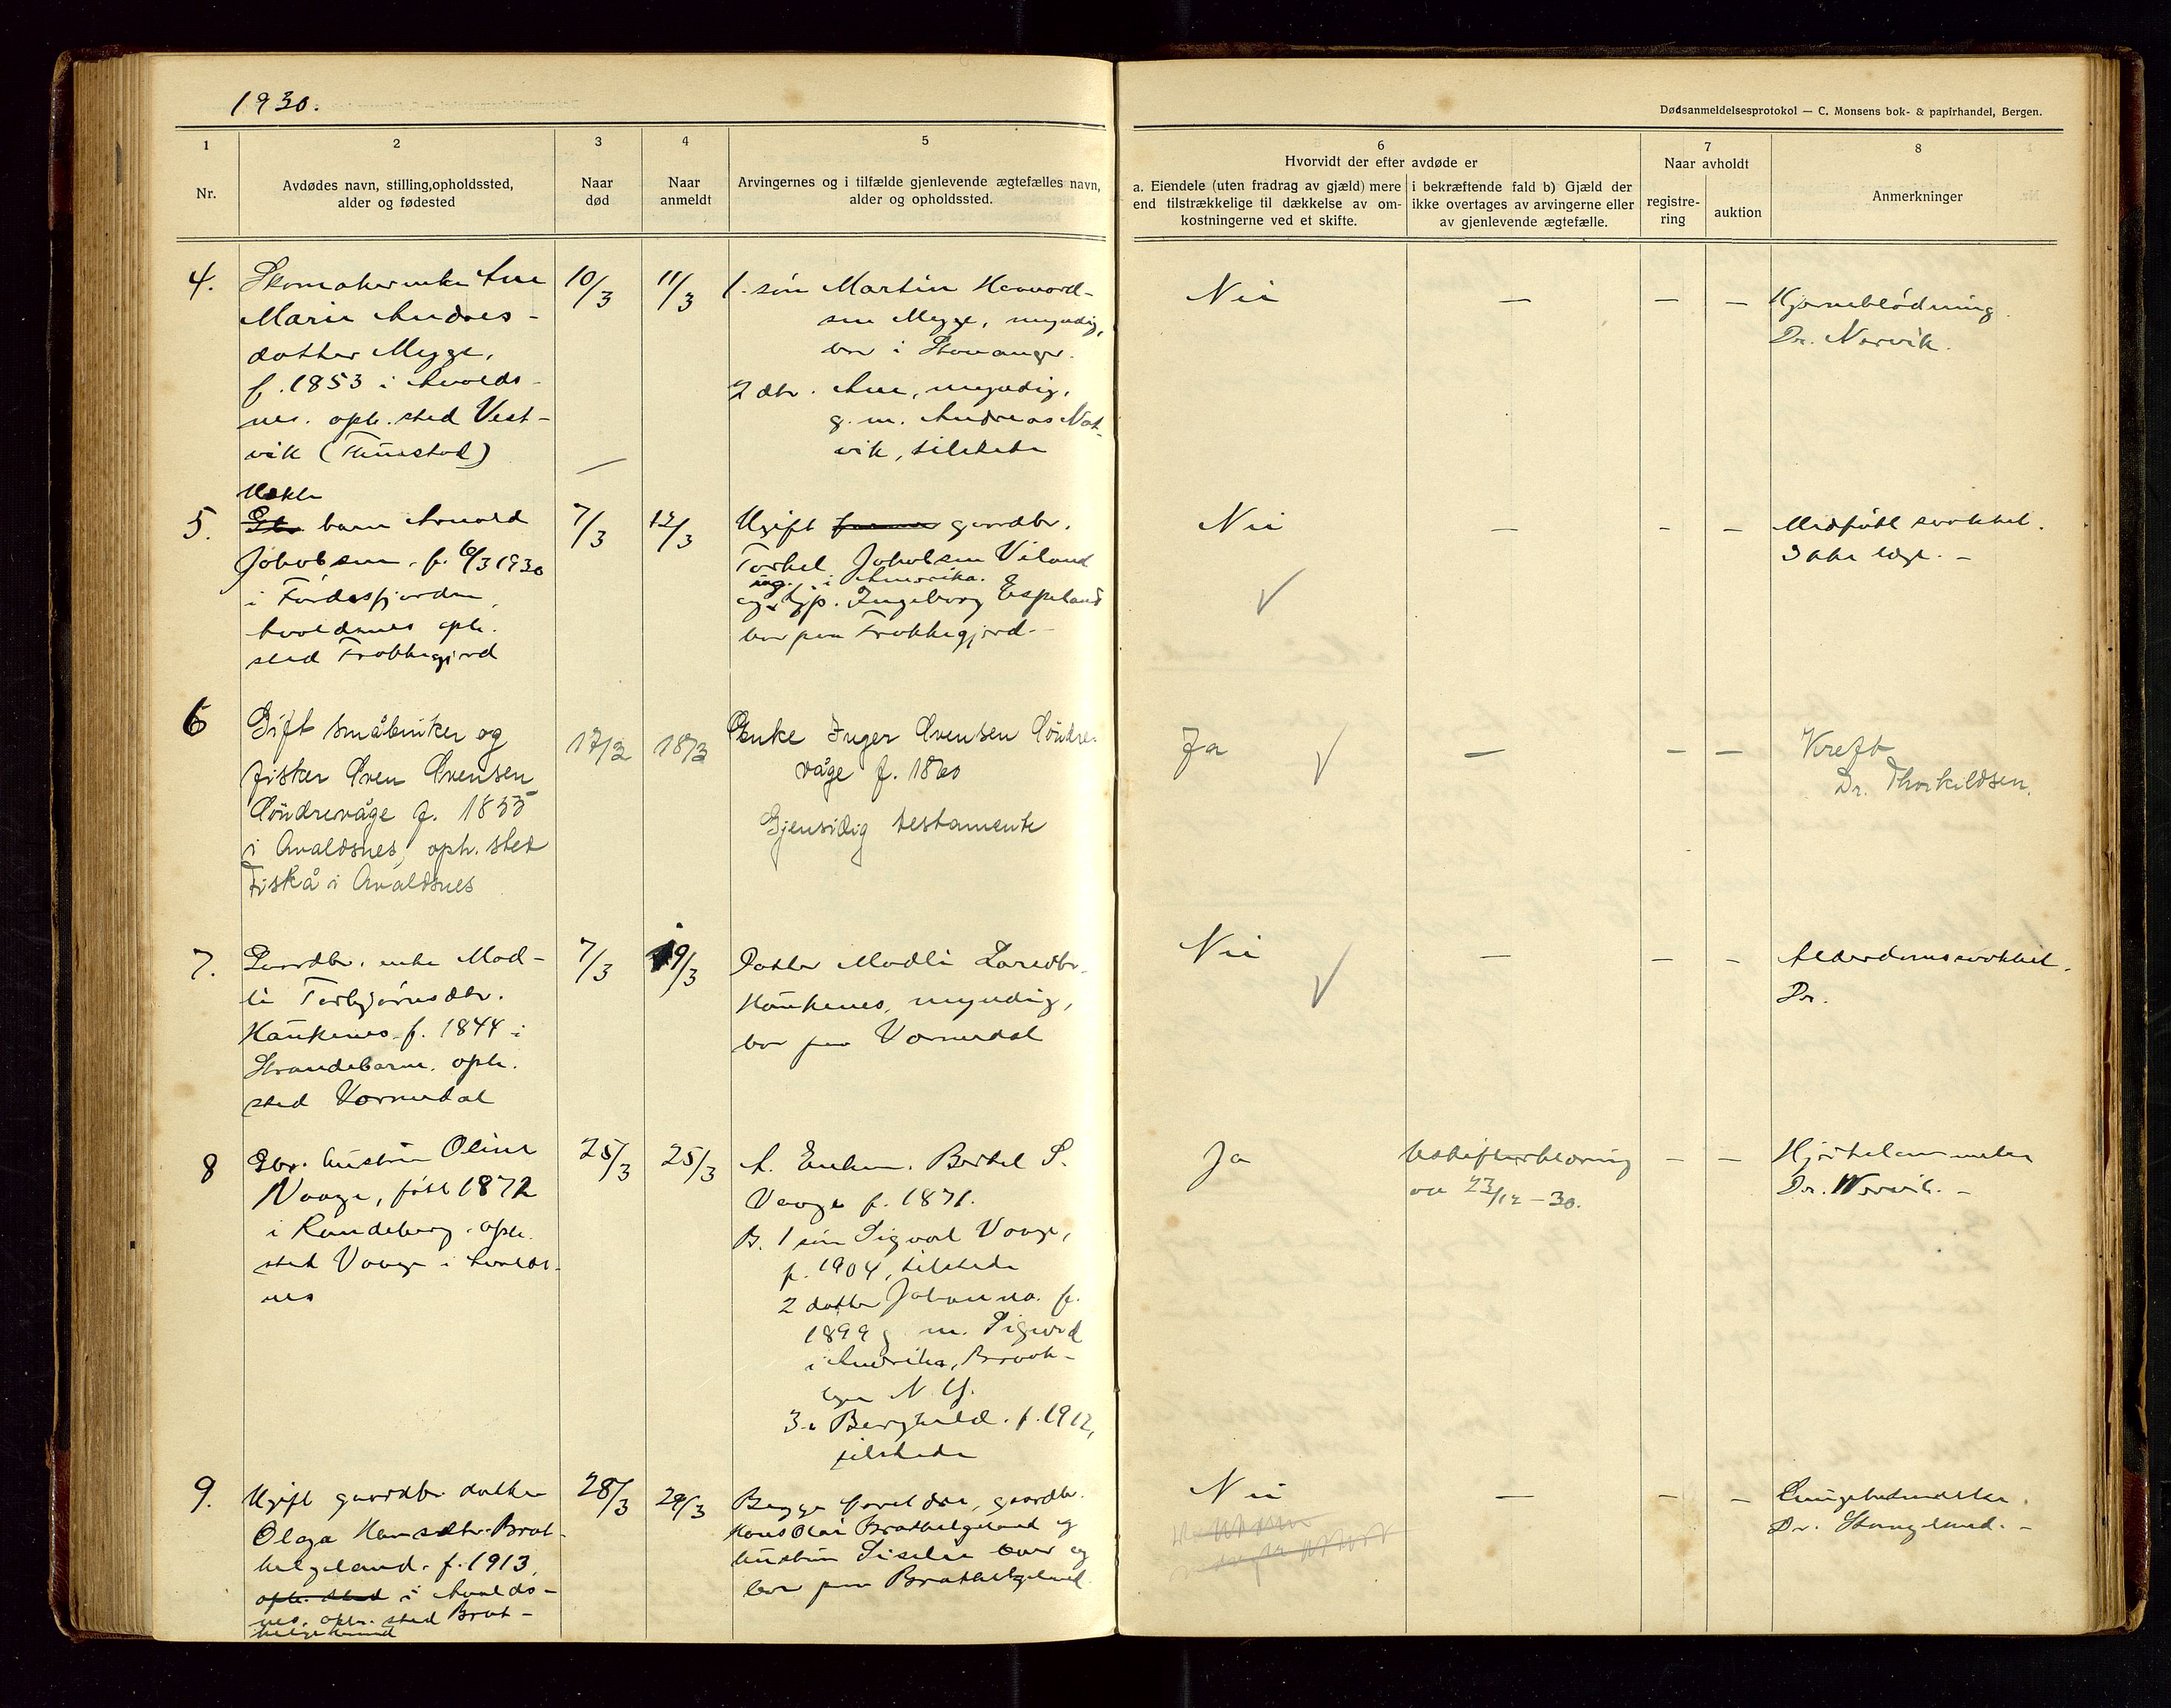 1930.
Dødsanmeldelsesprotokol — C. Monsens bok- & papirhandel, Bergen.
1
Nr.
2
Avdødes navn, stilling,opholdssted,
alder og fødested
3
Naar
død
4
Naar
anmeldt
5
Arvingernes og i tilfælde gjenlevende ægtefælles navn,
alder og opholdssted.
6
Hvorvidt der efter avdøde er
a. Eiendele (uten fradrag av gjæld) mere
end tilstrækkelige til dækkelse av om-
kostningerne ved et skifte.
i bekræftende fald b) Gjæld der
ikke overtages av arvingerne eller
av gjenlevende ægtefælle.
7
Naar avholdt
registre-
ring
auktion
8
Anmerkninger
4.
Skomakerenke Ane
Marie Andreas-
datter Mygge,
f. 1853 i Avalds-
nes. oph. sted Vest-
vik
10/3
11/3
1. søn Martin
sen Mygge, myndig,
bor i Stavanger.
2 dtr. Ane, myndig,
g. m. Andreas
vik, tilstede
Nei
—
—
—
Hjerneblødning.
Dr. Nervik.
5.
barn Arnord
Jakobsen. f. 6/3 1930
i Førdesfjorden,
Avaldsnes oph.
sted Frakkagjerd
7/3
12/3
Ugift gaardbr.
Torkel Jakobsen
i Amerika.
Ingeborg Espeland
bor paa Frakkagjerd.
Nei
—
—
—
Medfødt svakhet.
6
Gift småbruker og
fisker Sven Svensen
Söndrevåge f. 1855
i Avaldsnes, oph. sted
Fiskå i Avaldsnes
17/3
18/3
Enke Inger Svensen Söndre-
våge f. 1860
Gjensidig testamente
Ja
—
—
—
Kreft
Dr. Thorkildsen.
7.
Gaardbr. enke Mad-
li Torbjørnsdtr.
Haukenes f. 1844 i
Strandebarm. oph.
sted Vormedal
7/3
19/3
Datter Madli Larsdtr.
Haukenes, myndig,
bor paa Vormedal
Nei
—
—
—
Alderdomssvakhet.
Dr.
8
Gbr. hustru Oline
Vaage, født 1872
i Randeberg. oph.
sted Vaage i Avalds-
nes
25/3
25/3
A. Enkem. Bertel S.
Vaage f. 1871.
B. 1 søn Sigvart Vaage,
f. 1904, tilstede
2 datter Johanna. f.
1899 g. m. Sigurd
i Amerika, Brook-
lyn N. Y.
3. Berghild. f. 1912,
tilstede
Ja
Uskifteerklæring
av 23/12 — 30.
—
—
Hjertelammelse
Dr. Nervik. —
9.
Ugift gaardbr. datter
Olga Hansdtr. Brat-
helgeland. f. 1913,
oph. sted i Avalds-
nes. oph. sted Brat-
helgeland
28/3
29/3
Begge foreldre, gaardbr.
Hans Olai Brathelgeland og
hustru og
bor paa Brathelgeland
Nei
—
—
—
Lungebetændelse.
Dr. Stangeland. —